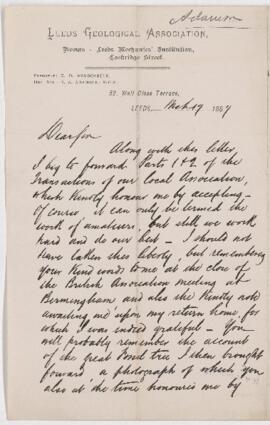 Adamson
LEEDS GEOLOGICAL ASSOCIATION,
Rooms - Leeds Mechanics' Institution,
Cookridge Street.
52, Well Close Terrace,
LEEDS, March 19 1887
Dear Sir
Along with this letter,
I beg to forward Parts 1 & 2 of the
Transactions of our local Association,
which kindly honour me by accepting -
Of course, it can only be termed the
work of amateurs, but still we work
hard and do our best - I should not
have taken this liberty, but remembering
your kind words to me at the close of
the British Association meeting at
Birmingham and also the kindly note
awaiting me upon my return home, for
which I was indeed grateful - You
will probably remember the account
of the great fossil tree I then brought
forward a photograph of which you
also at the time honoured me by